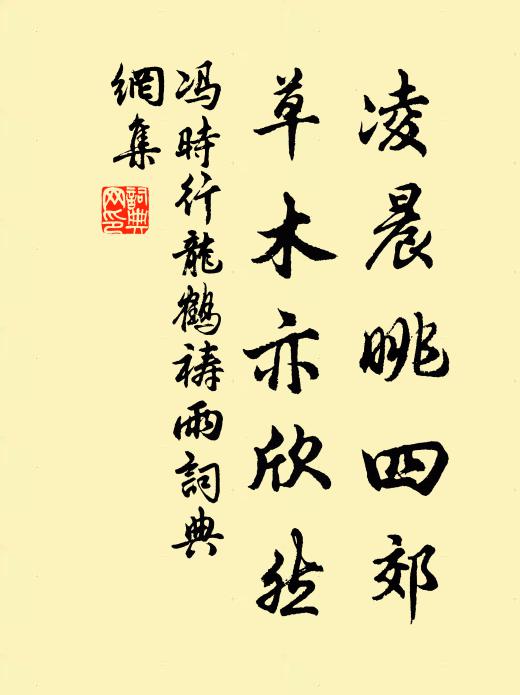 凌晨眺四郊
草木亦欣然
冯時行龍鶴禱雨詞典
網集
詞典网印